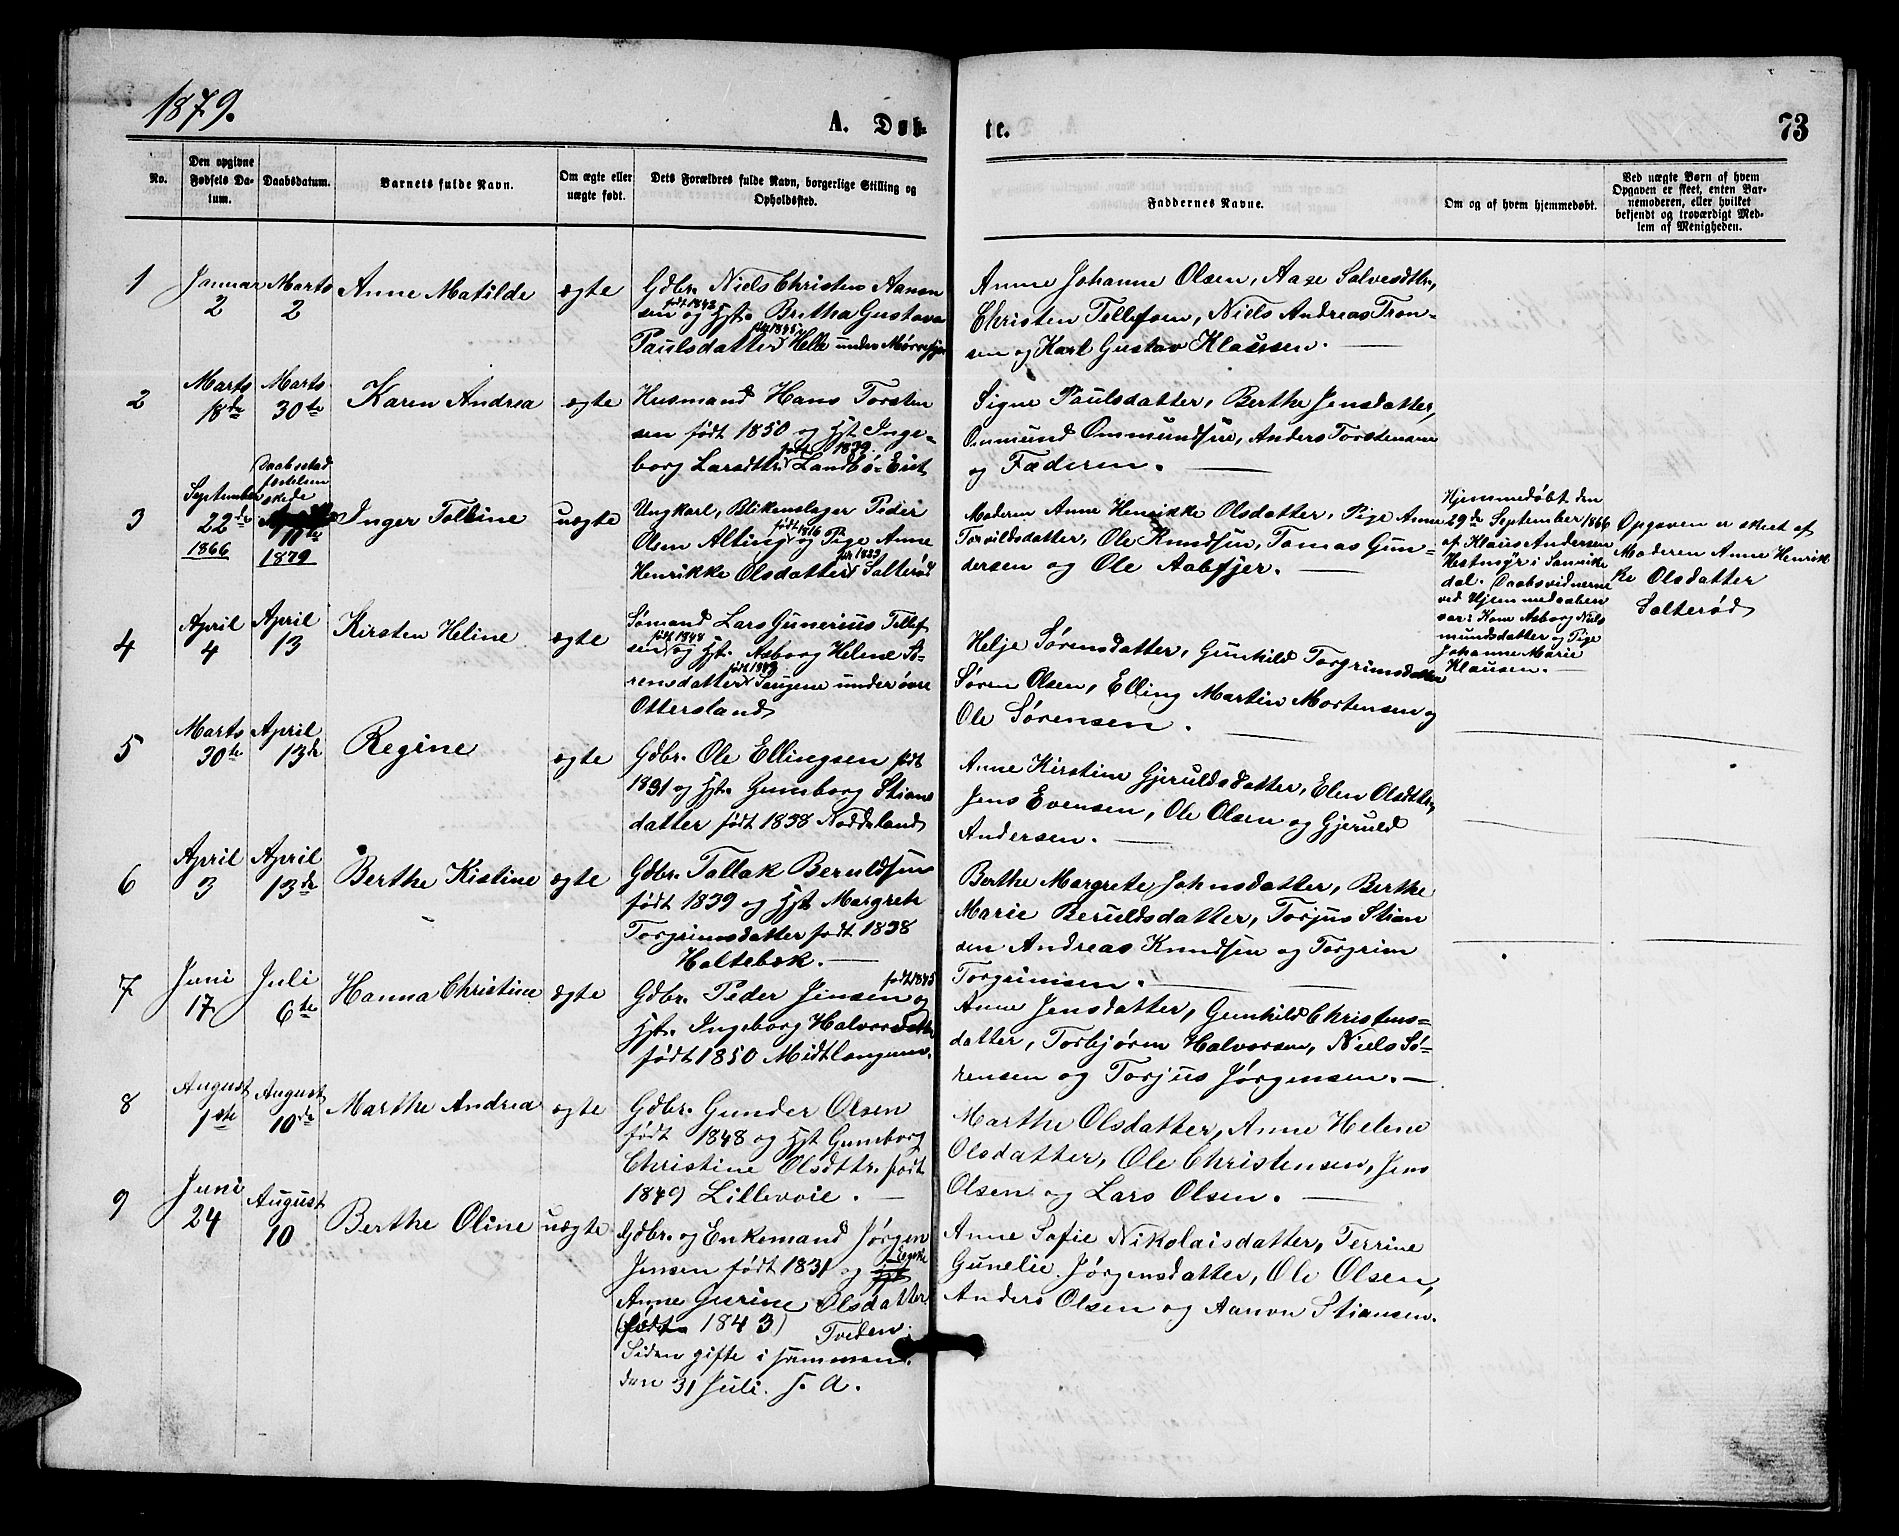 1879.
A. Døb-
te.
73
No.
Den opgivne
Fødsels Da-
tum.
Daabsdatum.
Barnets fulde Navn.
Om ægte eller
uægte født.
Dets Forældres fulde Navn, borgerlige Stilling og
Opholdssted.
Faddernes Navne.
Om og af hvem hjemmedøbt.
Ved uægte Børn af hvem
Opgaven er skeet, enten Bar-
nemoderen, eller hvilket
bekjendt og troværdigt Med-
lem af Menigheden.
1
Januar
2
Marts
2
Anne Matilde
ægte
Gdbr. Niels Christen Aanon
født 1843
sen og Hst. Britha Gustava
født 1845
Paulsdatter Helle under Mørefjer
Anne Johanne Olsen, Aase Salvesdtr.,
Christen Tellefsen, Niels Andreas Tron-
sen og Karl Gustav Klausen.
2
Marts
18de
Marts
30te
Karen Andrea
ægte
Husmand Hans Torsten
sen født 1850 og Hst. Inge-
født 1839
borg Larsdtr. Landbö-Eiet
Signe Paulsdatter, Berthe Jensdatter,
Ommund Ommundsen, Anders Torstensen
og Faderen.
3
September
22de
1866
Daabsstad
fæstelsen
skede
11te
1879
Inger Talline
uægte
Ungkarl, Blikenslager Peder
født 1816
Olsen Alting og Pige Anne
født 1833
Henrikke Olsdatter Salterød
Moderen Anne Henrikke Olsdatter, Pige Anne
Torvildsdatter, Ole Knudsen, Tomas Gun-
dersen og Ole Aabfjer.
Hjemmedøbt den
29de September 1866
af Klaus Andersen
Hestmyr i Sanvike
dal. Daabsvidnerne
ved Hjemmedaaben
var: Kone Asborg Niels
mundsdatter og Pige
Johanne Marie
Klausen.
Opgaven er skeet af
Moderen Anne Henrik
ke Olsdatter
Salterød
4
April
4
April
13
Kirsten Heline
ægte
Sømand Lars Gunerius Tellef
født 1848
sen og Hst. Asborg Helene Sø-
født 1849
rensdatter Saugene under øvre
Ottersland
Helje Sørensdatter, Gunhild Torgrimsdatter
Søren Olsen, Elling Martin Mortensen og
Ole Sørensen.
5
Marts
30te
April
13de
Regine
ægte
Gdbr. Ole Ellingsen født
1831 og Hst. Gunborg Stians
datter født 1838 Noddeland
Anne Kirstine Gjeruldsdatter, Elen Olsdtr.,
Jens Evensen, Ole Olsen og Gjeruld
Andersen.
6
April
3
April
13de
Berthe Kistine
ægte
Gdbr. Tallak Beruldsen
født 1839 og Hst Margrete
Torgrimsdatter født 1838
Holtebæk.
Berthe Margrete Johnsdatter, Berthe
Marie Beruldsdatter, Torjus Stian
sen Andreas Knudsen og Torgrim
Torgrimsen.
7
Juni
17
Juli
6te
Hanna Christine
ægte
født 1845
Gdbr. Peder Jensen og
Hst. Ingeborg Halvorsdatter
født 1850 Midtlangum.
Anne Jensdatter, Gunhild Christens-
datter, Torbjørn Halvorsen, Niels Sö-
rensen og Torjus Jørgensen.
8
August
1ste
August
10de
Marthe Andrea
ægte
Gdbr. Gunder Olsen
født 1848 og Hst Gunborg
Christine Olsdtr. født
1849 Lillevoie.
Marthe Olsdatter, Anne Helene
Olsdatter, Ole Christensen, Jens
Olsen og Lars Olsen.
9
Juni
24
August
10
Berthe Oline
uægte
Gdbr. og Enkemand Jørgen
Jensen født 1831 og
Anne Gurine Olsdatter
(født 1843) Tveden.
Siden gifte i sammen
den 31 Juli. s. A.
Anne Sofie Nikolaisdatter, Terrine
Gunelie Jørgensdatter, Ole Olsen,
Anders Olsen og Aanon Stiansen.